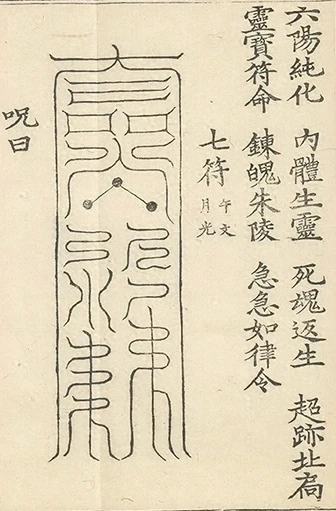 六陽純化　內體生靈　死魂返生　超跡
靈寶符命　鍊魄朱陵　急急如律令
七符　午文　月光
呪曰